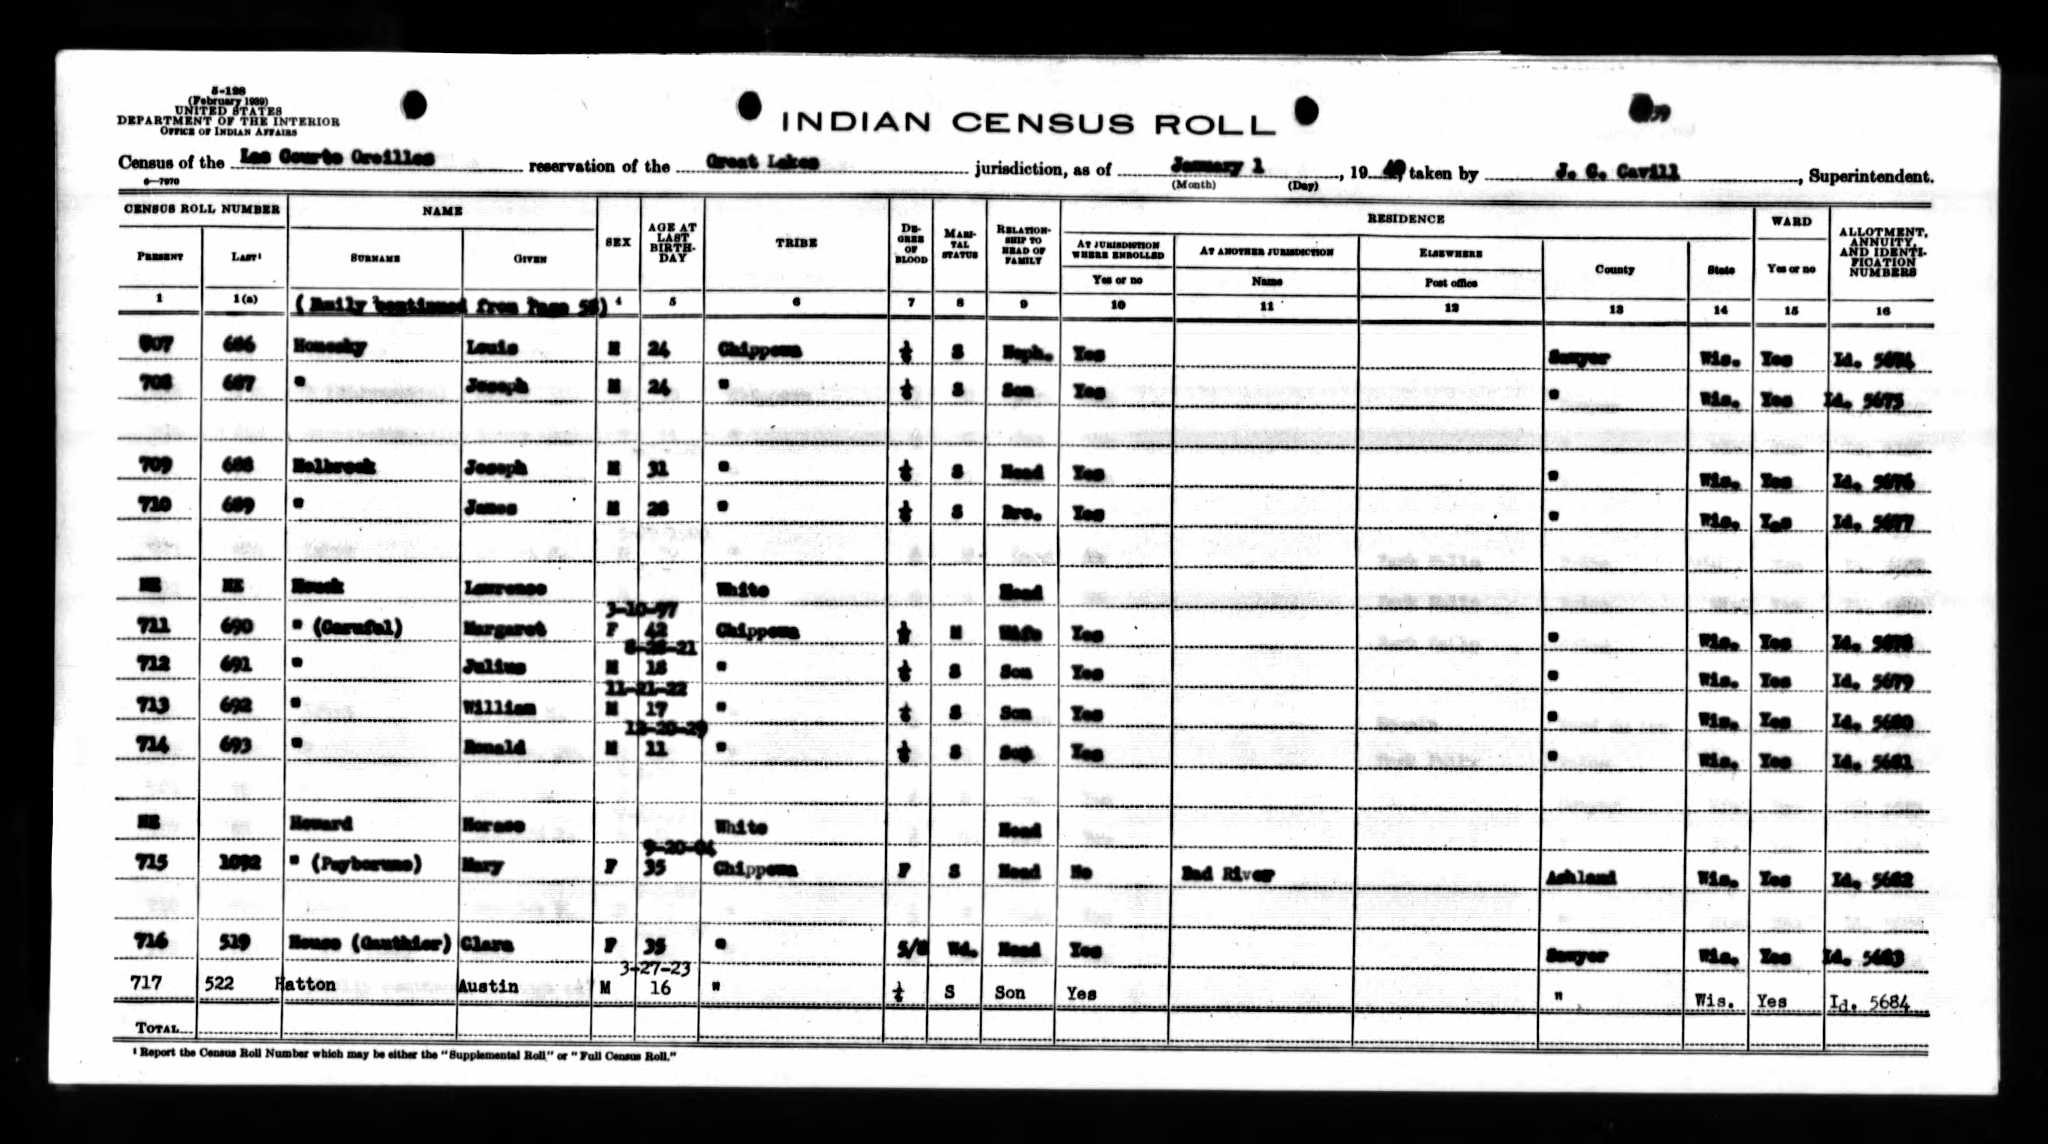 5-128
(February 1939)
UNITED STATES
DEPARTMENT OF THE INTERIOR
OFFICE OF INDIAN AFFAIRS
INDIAN CENSUS ROLL
39
Census of the Lac Courte Oreilles reservation of the Great Lakes jurisdiction, as of January 1, 1940, taken by J. C. Cavill, Superintendent.
6—7970 (Month) (Day)
CENSUS ROLL NUMBER NAME SEX AGE AT LAST BIRTHDAY TRIBE DEGREE OF BLOOD MARITAL STATUS RELATIONSHIP TO HEAD OF FAMILY RESIDENCE WARD ALLOTMENT, ANNUITY, AND IDENTIFICATION NUMBERS
PRESENT LAST¹ SURNAME GIVEN AT JURISDICTION WHERE ENROLLED AT ANOTHER JURISDICTION ELSEWHERE County State Yes or no
Yes or no Name Post office
1 1(a) (Family continued from Page 58) 4 5 6 7 8 9 10 11 12 13 14 15 16
707 686 Homesky Louis M 24 Chippewa S Neph. Yes Sawyer Wis. Yes Id. 5674
708 687 " Joseph M 24 " S Son Yes " Wis. Yes Id. 5675
709 688 Holbrook Joseph M 31 " S Head Yes " Wis. Yes Id. 5676
710 689 " James M 28 " S Bro. Yes " Wis. Yes Id. 5677
NE NE Houck Lawrence White Head
3-10-97
711 690 " (Carufel) Margaret F 42 Chippewa M Wife Yes " Wis. Yes Id. 5678
8-28-21
712 691 " Julius M 18 " S Son Yes " Wis. Yes Id. 5679
11-21-22
713 692 " William M 17 " S Son Yes " Wis. Yes Id. 5680
12-20-29
714 693 " Ronald M 11 " S Son Yes " Wis. Yes Id. 5681
NE Howard Horace White Head
9-20-04
715 1092 " Mary F 35 Chippewa F S Head No Bad River Ashland Wis. Yes Id. 5682
716 519 House (Gauthier) Clara F 35 " 5/8 Wd. Head Yes Sawyer Wis. Yes Id. 5683
3-27-23
717 522 Hatton Austin M 16 " S Son Yes " Wis. Yes Id. 5684
TOTAL
¹ Report the Census Roll Number which may be either the "Supplemental Roll," or "Full Census Roll."